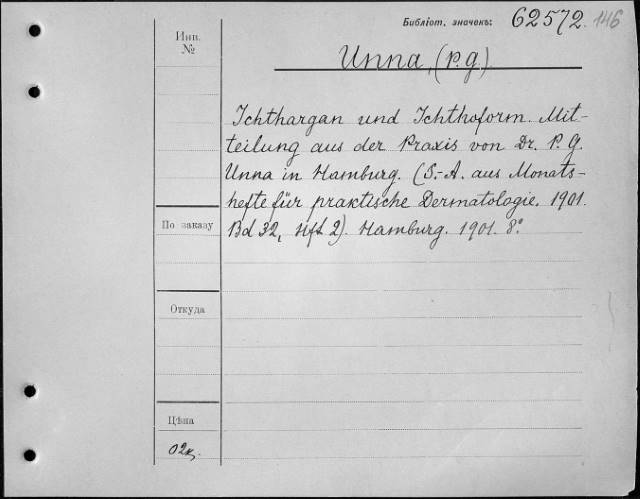 Библіот. значекъ: 62572. 146
Инв.
№
Unna, (P. G.)
Ichthargan und Ichthoform. Mit-
teilung aus der Praxis von Dr. P. G.
Unna in Hamburg. (S.-A. aus Monats-
hefte für praktische Dermatologie. 1901.
Bd 32, Hft 2). Hamburg. 1901. 8°.
По заказу
Откуда
Цѣна